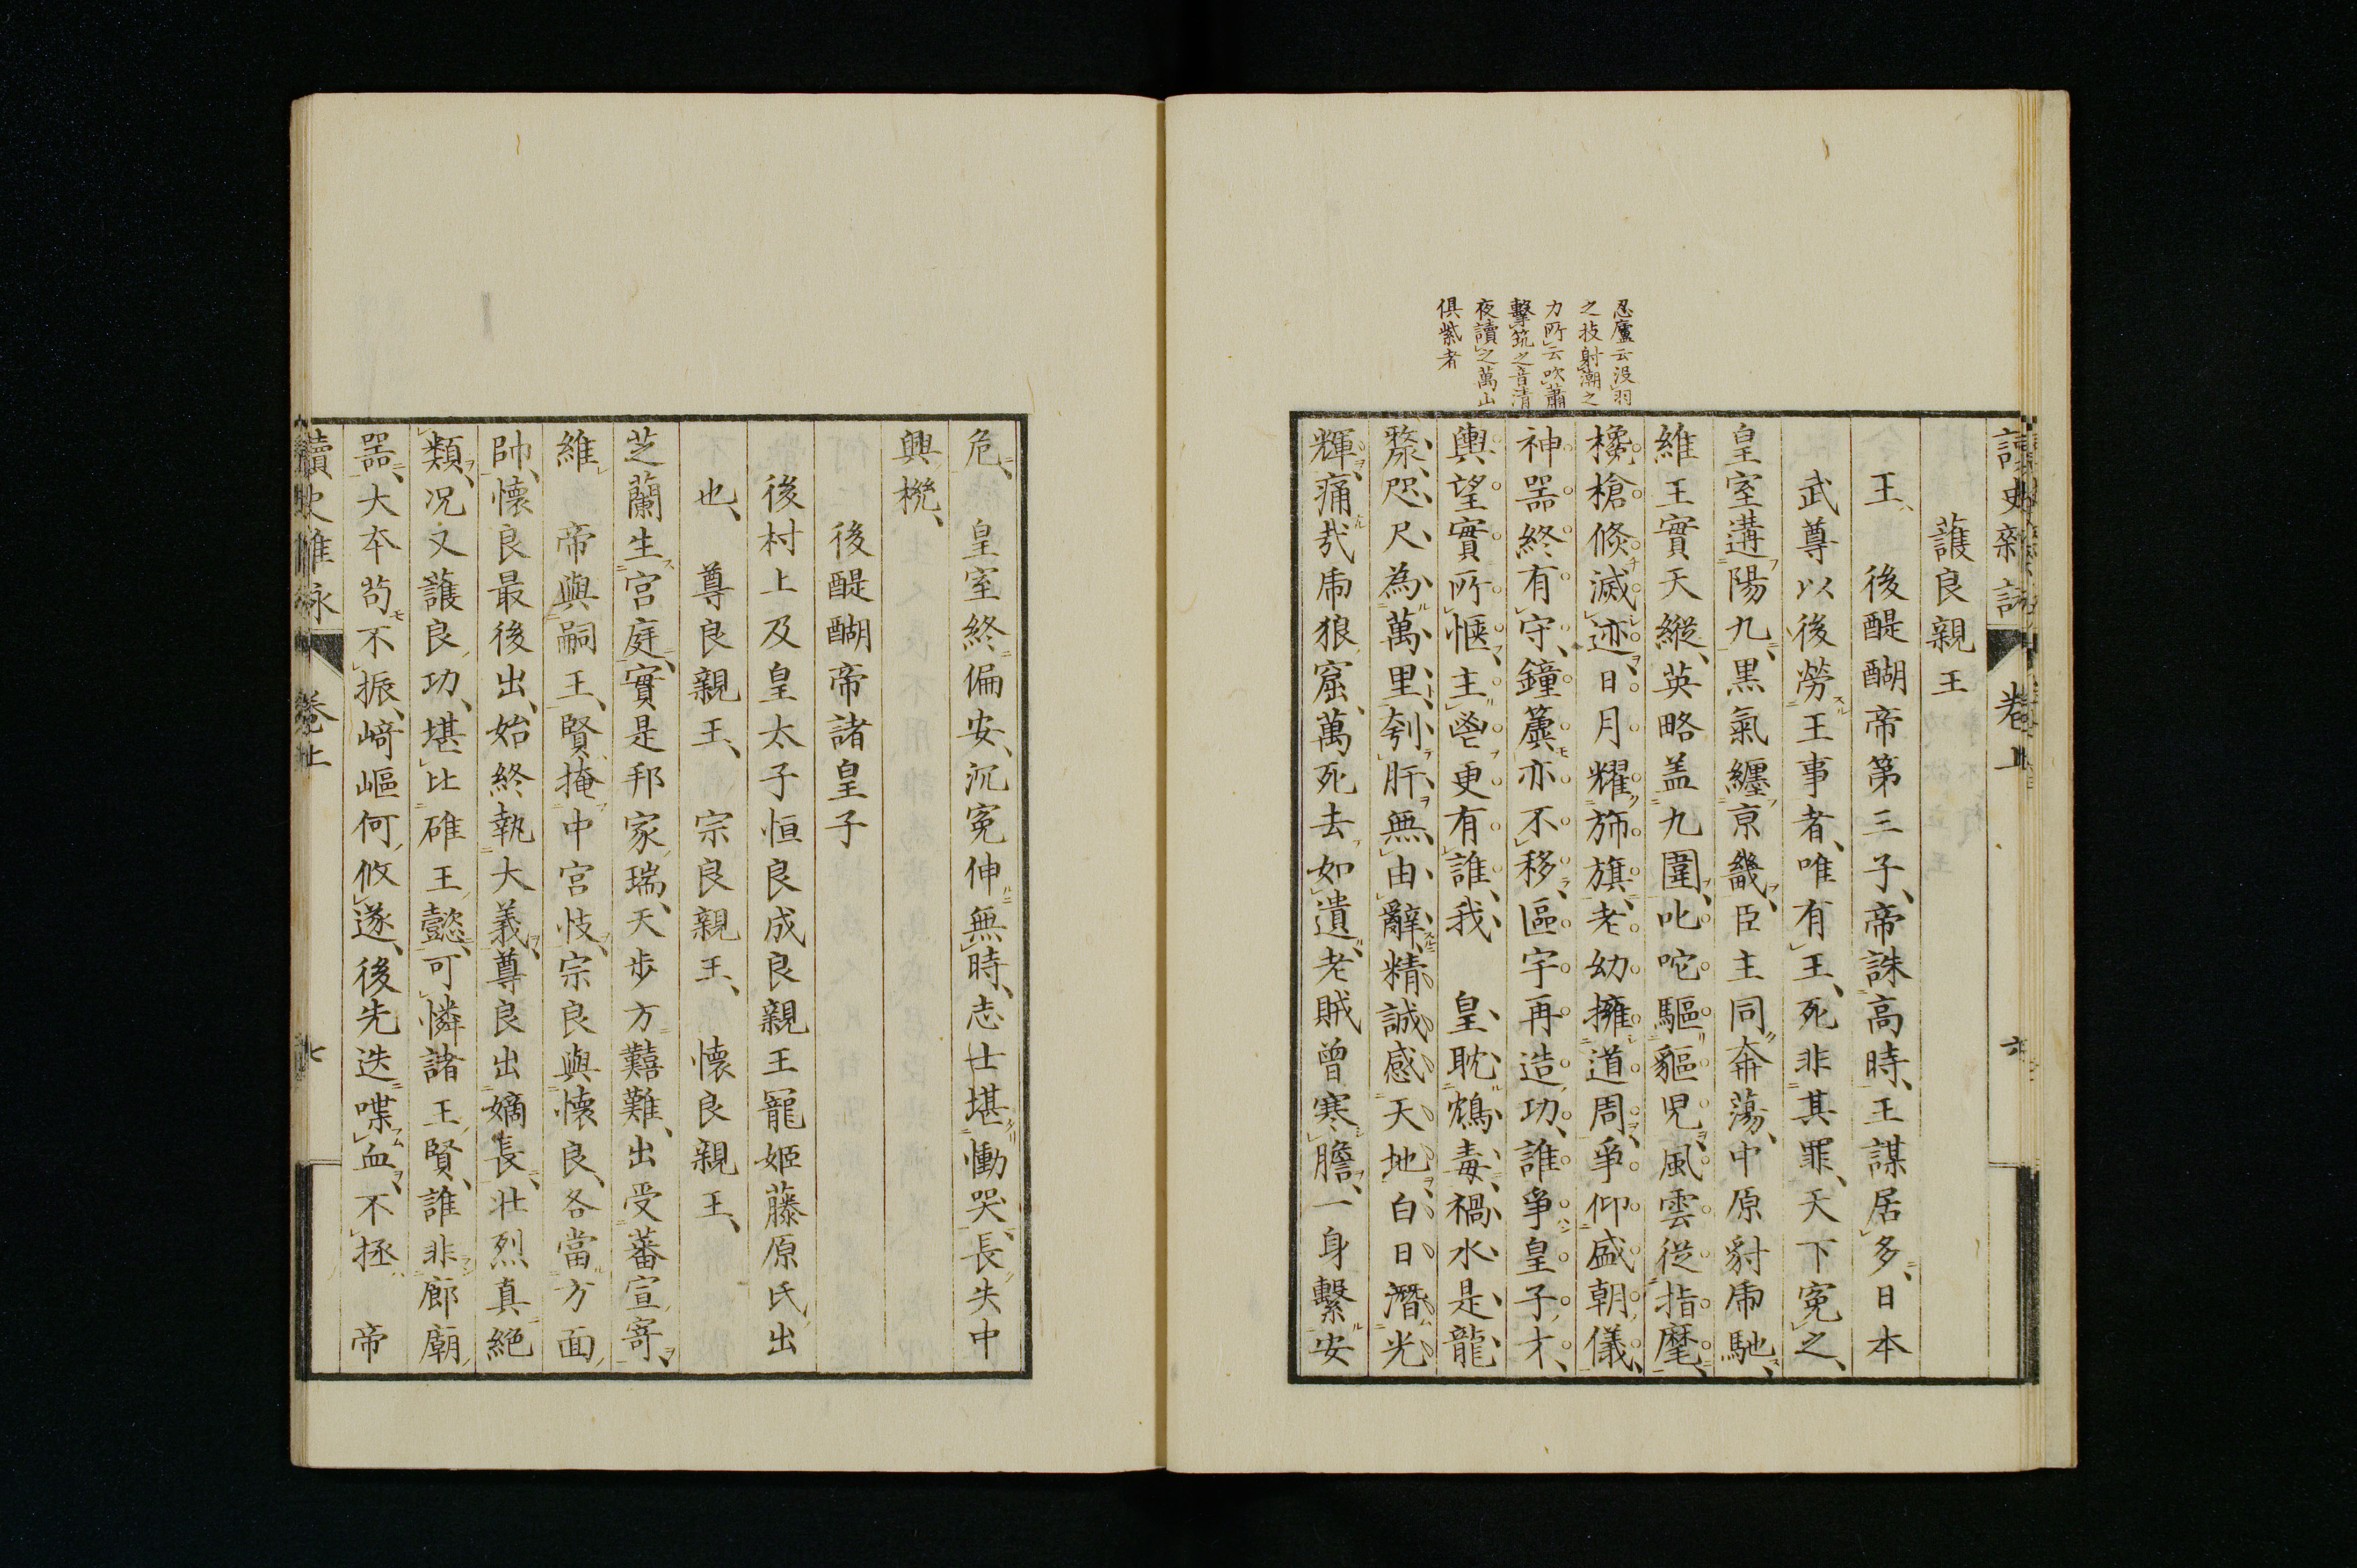 忍廬云没羽
之技射潮之
力所云吹蕭
擊筑之音清
夜讀之萬山
俱紫者
讀史雜詠 卷上 六
護良親王
王、後醍醐帝第三子、帝誅高時、王謀居多、日本
武尊以後勞王事者、唯有王、死非其罪、天下冤之、
皇室遘陽九、黒氣纏京畿、臣主同奔蕩、中原豺乕馳、
維王實天縱、英略盖九圍、叱咜驅貙児、風雲従指麾、
欃槍倐滅迹、日月耀斾旗、老幼擁道周、爭仰盛朝儀、
神噐終有守、鐘簴亦不移、區宇再造功、誰爭皇子才、
輿望實所惬、主鬯更有誰、我 皇耽鴆毒、禍水是龍
漦、咫尺為萬里、刳肝無由辭、精誠感天地、白日潛光
輝、痛㢤乕狼窟、萬死去如遺、老賊曾寒膽、一身繫安
危、 皇室終偏安、沉冤伸無時、志士堪慟哭、長失中
興機、
後醍醐帝諸皇子
後村上及皇太子恒良成良親王寵姬藤原氏出
也、 尊良親王、 宗良親王、 懐良親王、
芝蘭生宮庭、實是邦家瑞、天歩方囏難、出受蕃宣寄、
維 帝與嗣王、賢掩中宮忮、宗良與懐良、各當方面
帥、懐良最後出、始終執大義、尊良出嫡長、壮烈真絶
類、况又護良功、堪比碓王懿、可憐諸王賢、誰非廊廟
噐、大夲苟不振、﨑嶇何攸遂、後先迭喋血、不拯 帝
讀史雜詠 卷上 七